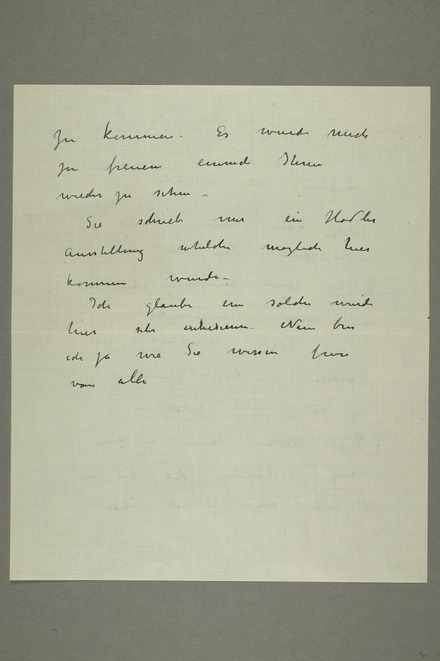 zu kommen. Es wurde mich
zu freuen einmal Ihnen
wieder zu sehen.
Sie schrieb mir ein Hodler
Ausstellung welche moglich hier
kommen wurde.
Ich glaube ein solche wurde
hier sehr interessieren. Nun bin
ich ja wie Sie wissen frei
von alle